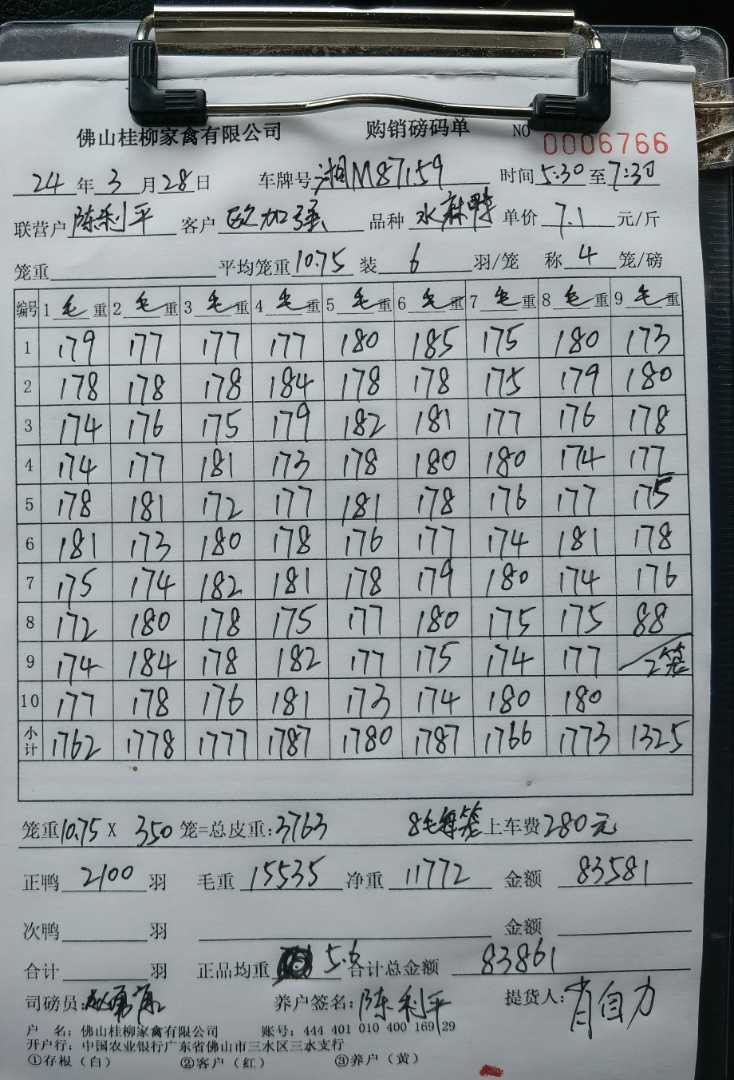 佛山桂柳家禽有限公司 购销磅码单 NO 0006766
24 年 3 月 28 日 车牌号 湘M87159 时间 5:30 至 7:30
联营户 陈利平 客户 欧加强 品种 水麻鸭 单价 7.1 元/斤
笼重 平均笼重 10.75 装 6 羽/笼 称 4 笼/磅
编号 1 毛重 2 毛重 3 毛重 4 毛重 5 毛重 6 毛重 7 毛重 8 毛重 9 毛重
1 179 177 177 177 180 185 175 180 173
2 178 178 178 184 178 178 175 179 180
3 174 176 175 179 182 181 177 176 178
4 174 177 181 173 178 180 180 174 177
5 178 181 172 177 181 178 176 177 175
6 181 173 180 178 176 177 174 181 178
7 175 174 182 181 178 179 180 174 176
8 172 180 178 175 177 180 175 175 88
9 174 184 178 182 177 175 174 177 2笼
10 177 178 176 181 173 174 180 180
小计 1762 1778 1777 1787 1780 1787 1766 1773 1325
笼重 10.75 X 350 笼=总皮重: 3763 8毛 笼 上车费 280元
正鸭 2100 羽 毛重 15535 净重 11772 金额 83581
次鸭 羽 金额
合计 羽 正品均重 5.6 合计总金额 83861
司磅员: 养户签名: 陈利平 提货人: 肖自力
户 名: 佛山桂柳家禽有限公司 账号: 444 401 010 400 169 29
开户行: 中国农业银行广东省佛山市三水区三水支行
①存根（白） ②客户（红） ③养户（黄）